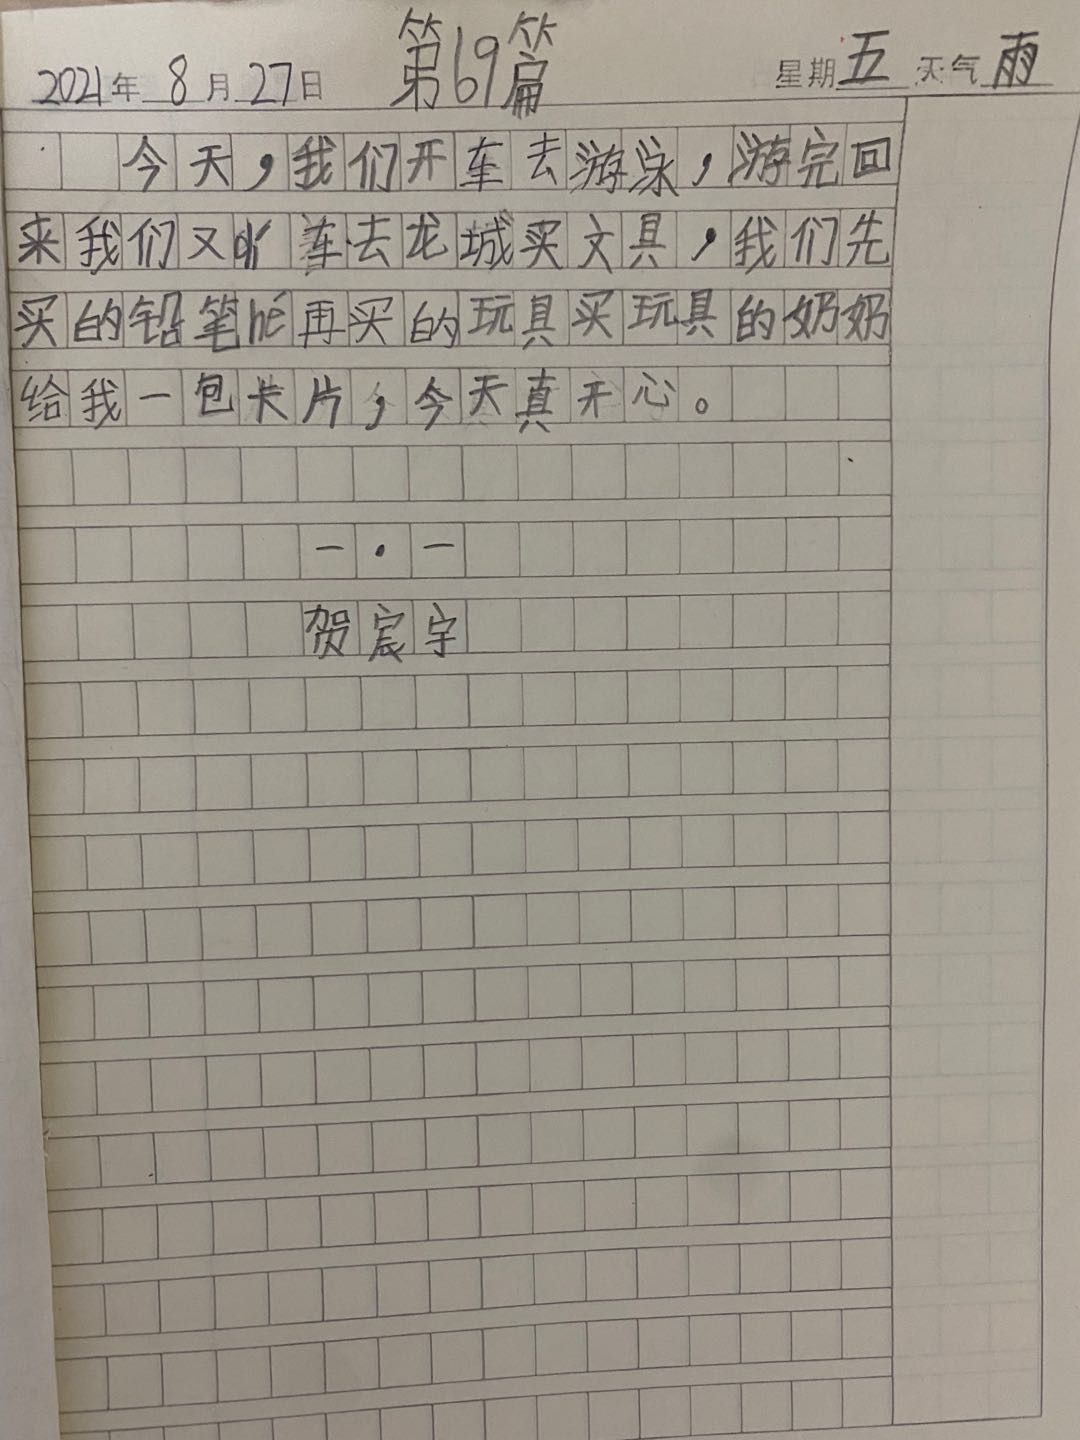 2021年 8月27日 第69篇 星期五 天气雨
今天，我们开车去游泳，游完回
来我们又qí车去龙城买文具，我们先
买的铅笔hé再买的玩具买玩具的奶奶
给我一包卡片，今天真开心。
一·一
贺宸宇